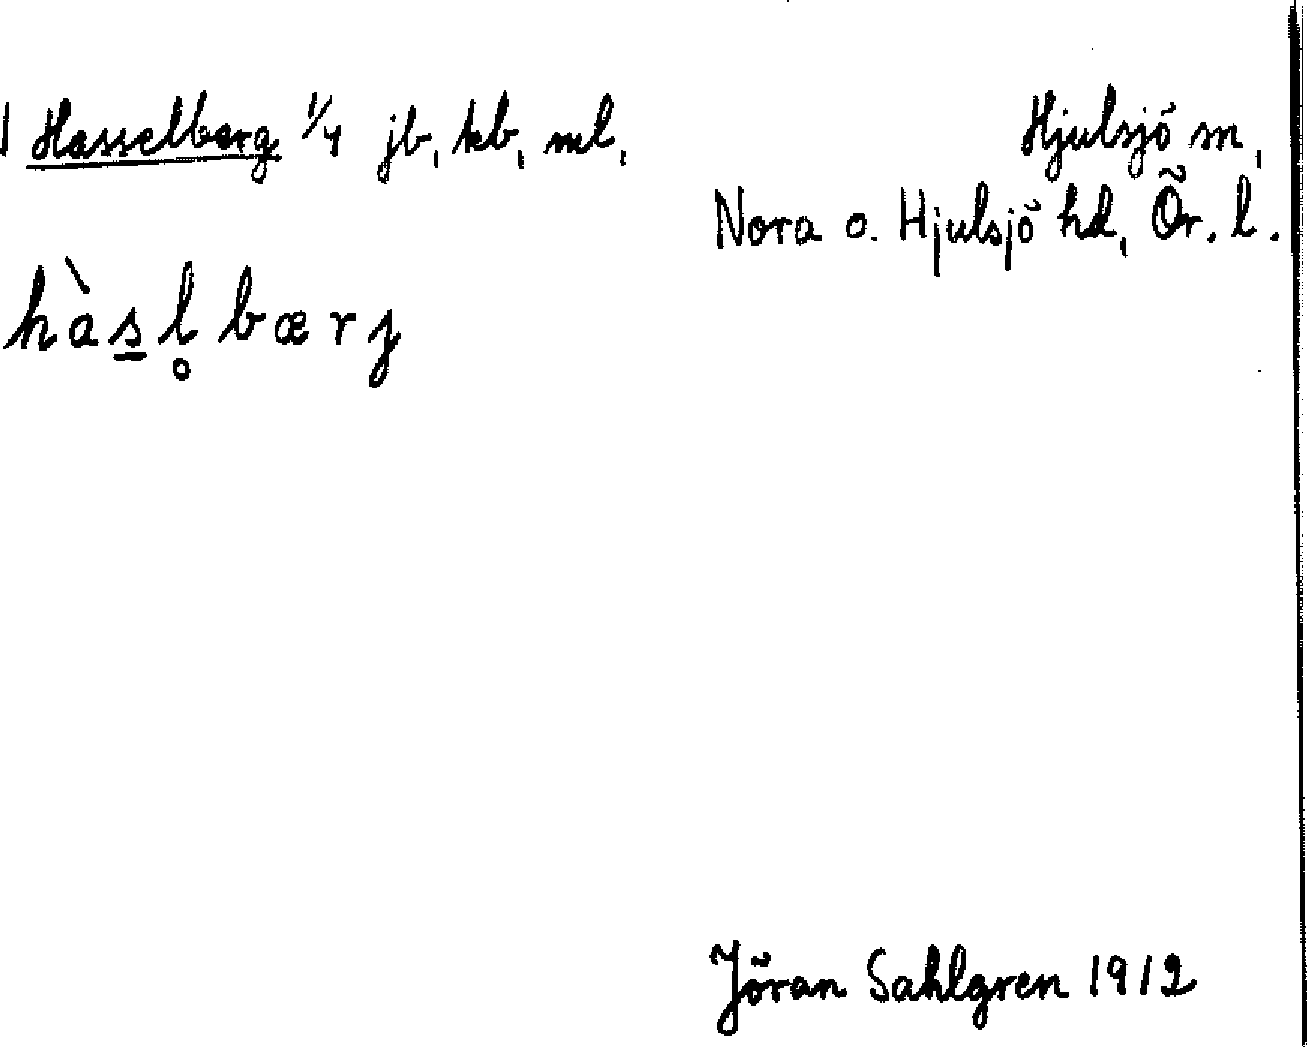 1 Hasselberg 1/4 jb, kb, ml,
Hjulsjö sn,
Nora o. Hjulsjö hd, Ör. l.
hàs̲l̥bærj
Jöran Sahlgren 1912